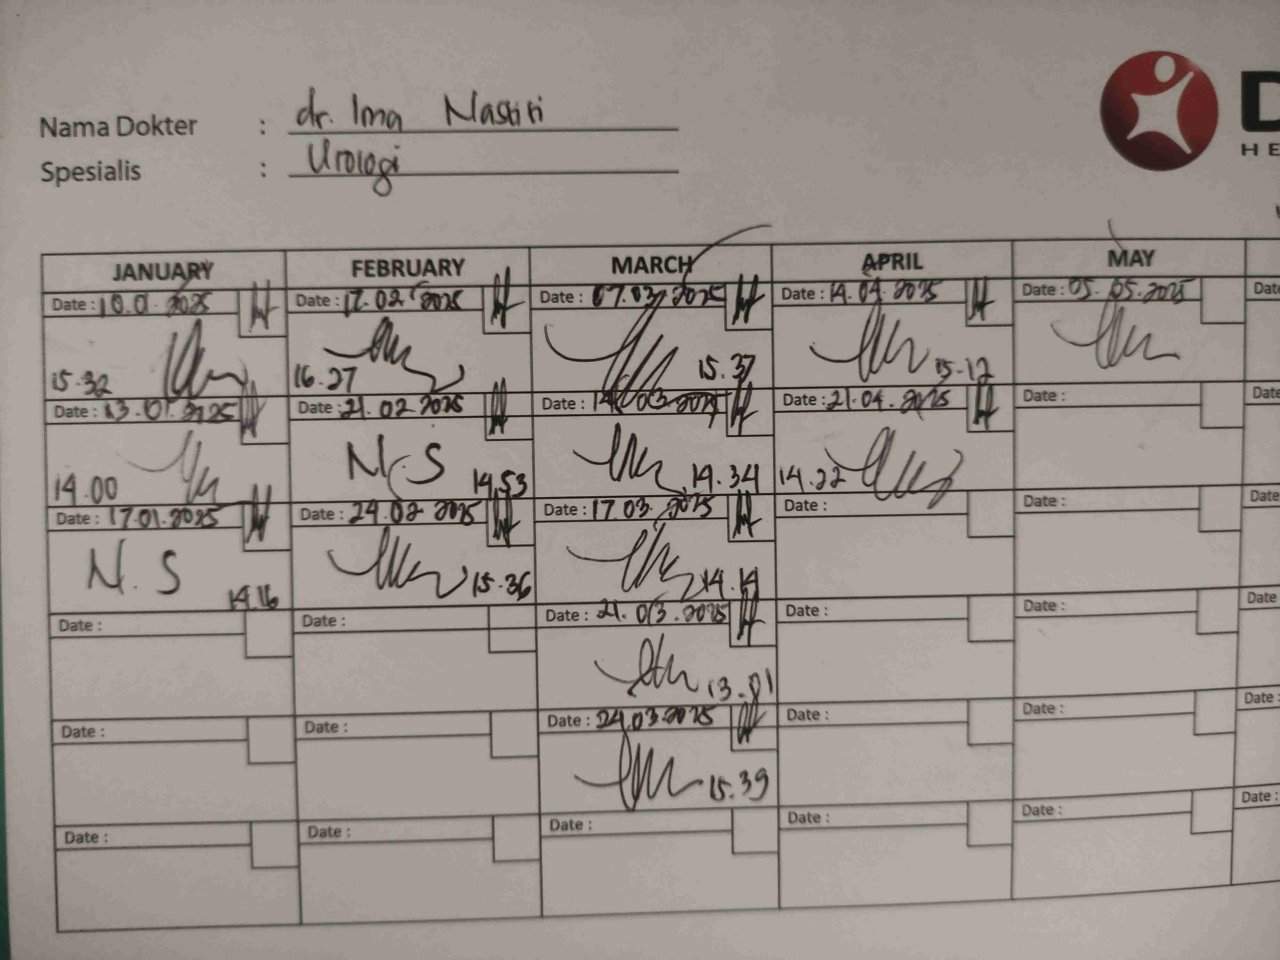 Nama Dokter : dr. Ima Nastiti
Spesialis : Urologi
D
HE
JANUARY FEBRUARY MARCH APRIL MAY
Date : 10.0 . 2025 Date : 17.02 2025 Date : 07.03.2025 Date : 14.04.2025 Date : 05.05.2025 Date
15.32 16.27 15.37 15.12
Date : 13.01.2025 Date : 21.02 2025 Date : 14.03.2025 Date : 21.04.2025 Date : Date
14.00 N.S 14.53 14.34 14.22
Date : 17.01.2025 Date : 24.02 2025 Date : 17.03.2025 Date : Date : Date
N.S 14.16 15.36 14.14
Date : Date : Date : 21.03.2025 Date : Date : Date
13.01
Date : Date : Date : 24.03.2025 Date : Date : Date :
15.39
Date : Date : Date : Date : Date : Date :